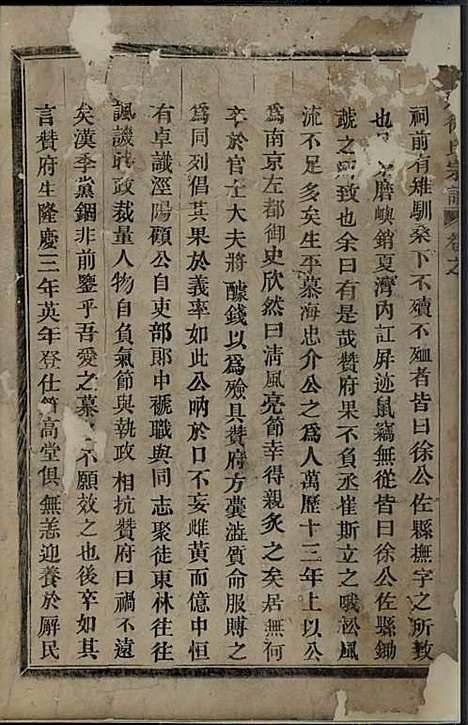 徐氏宗譜 卷之
祠前有雉馴桑下不殰不殈者皆曰徐公佐縣撫字之所致
也 磨嶼銷夏灣内訌屏迹鼠竊無從皆曰徐公佐縣鋤
瓻之所致也余曰有是哉贊府果不負丞崔斯立之哦松風
流不足多矣生平慕海忠介公之爲人萬歷十三年上以公
爲南京左都御史欣然曰清風亮節幸得親炙之矣居無何
卒於官士大夫將醵錢以爲殮具贊府方囊滥質命服賻之
爲同列倡其果於義率如此公吶於口不妄雌黃而億中恒
有卓識涇陽顧公自吏部郎中褫職與同志聚徒東林往往
諷譏政裁量人物自負氣節與執政相抗贊府曰禍不遠
矣漢季黨錮非前鑒乎吾愛之慕 不願效之也後卒如其
言贊府生隆慶三年英年登仕 高堂俱無恙迎養於廨民